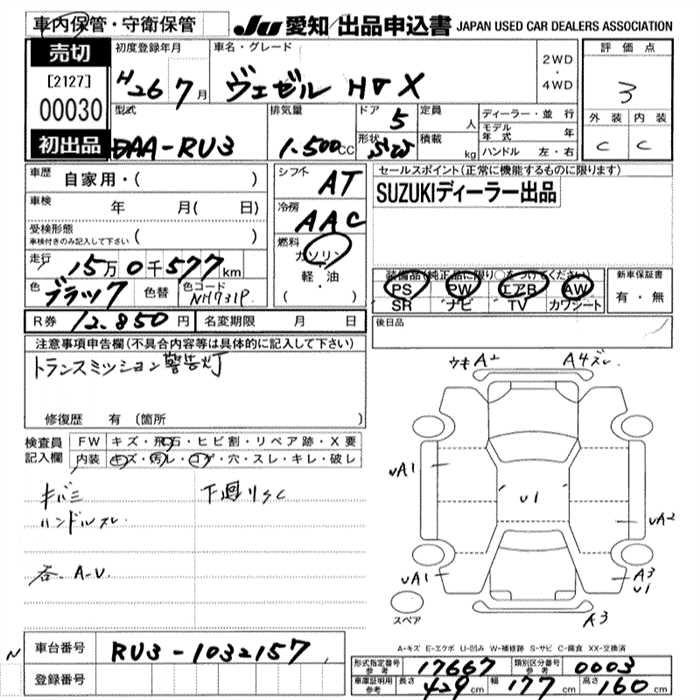 車内保管・守衛保管
JU 愛知 出品申込書 JAPAN USED CAR DEALERS ASSOCIATION
売切
[2127]
00030
初出品
初度登録年月
H26 7月
車名・グレード
ヴェゼル HV X
2WD
・
4WD
評価点
3
外装 内装
C C
型式
DAA-RU3
排気量
1.500cc
ドア 5
形状
定員 人
積載 kg
ディーラー・並行
モデル年式 年
ハンドル 左・右
車歴 自家用・( )
車検 年 月( 日)
受検形態
車検付きのみ記入して下さい ( )
走行 15万0千577km
色 ブラック 色替 色コード NH731P
シフト AT
冷房 AAC
燃料 ガソリン
軽・油
( )
セールスポイント(正常に機能するものに限ります)
SUZUKIディーラー出品
装備品(純正品に限り○をつけてください)
PS PW エアB AW
SR ナビ TV カワシート
新車保証書
有・無
R券 12.850円 名変期限 月 日
後日品
注意事項申告欄(不具合内容等は具体的に記入して下さい)
トランスミッション警告灯
修復歴 有 (箇所 )
検査員
記入欄
FW キズ・飛石・ヒビ割・リペア跡・X要
内装 キズ・汚レ・コゲ・穴・スレ・キレ・破レ
キバミ 下廻りSC
ハンドルスレ
各.A-U.
ウキA2 A4ズレ
uA1
U1
uA2
uA1
A3
U1
スペア
A3
A-キズ E-エクボ U-凹み W-補修跡 S-サビ C-腐食 XX-交換済
N
車台番号 RU3-1032157
登録番号
形式指定番号 参考 17667 類別区分番号 参考 0003
車庫証明用 参考 長さ 429cm 幅 177cm 高さ 160cm